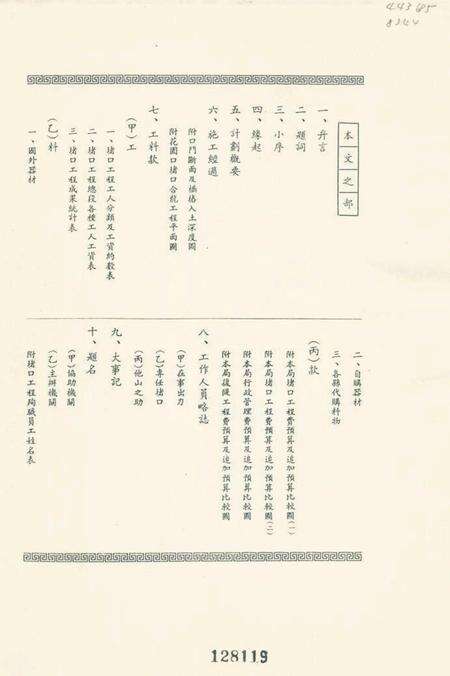 44385
8344
本文之部
一、弁言
二、題詞
三、小序
四、緣起
五、計劃概要
六、施工經過
附口門斷面及樁橋入土深度圖
附花園口堵口合龍工程平面圖
七、工料款
(甲)工
一、堵口工程工人分類及工資約數表
二、堵口工程總段各種工人工資表
三、堵口工程成果統計表
(乙)料
一、國外器材
二、自購器材
三、各縣代購料物
(丙)款
附本局堵口工程費預算及追加預算比較圖(一)
附本局堵口工程費預算及追加預算比較圖(二)
附本局行政管理費預算及追加預算比較圖
附本局復隄工程費預算及追加預算比較圖
八、工作人員略誌
(甲)在事出力
(乙)專任堵口
(丙)他山之助
九、大事記
十、題名
(甲)協助機關
(乙)主辦機關
附堵口工程殉職員工姓名表
128119